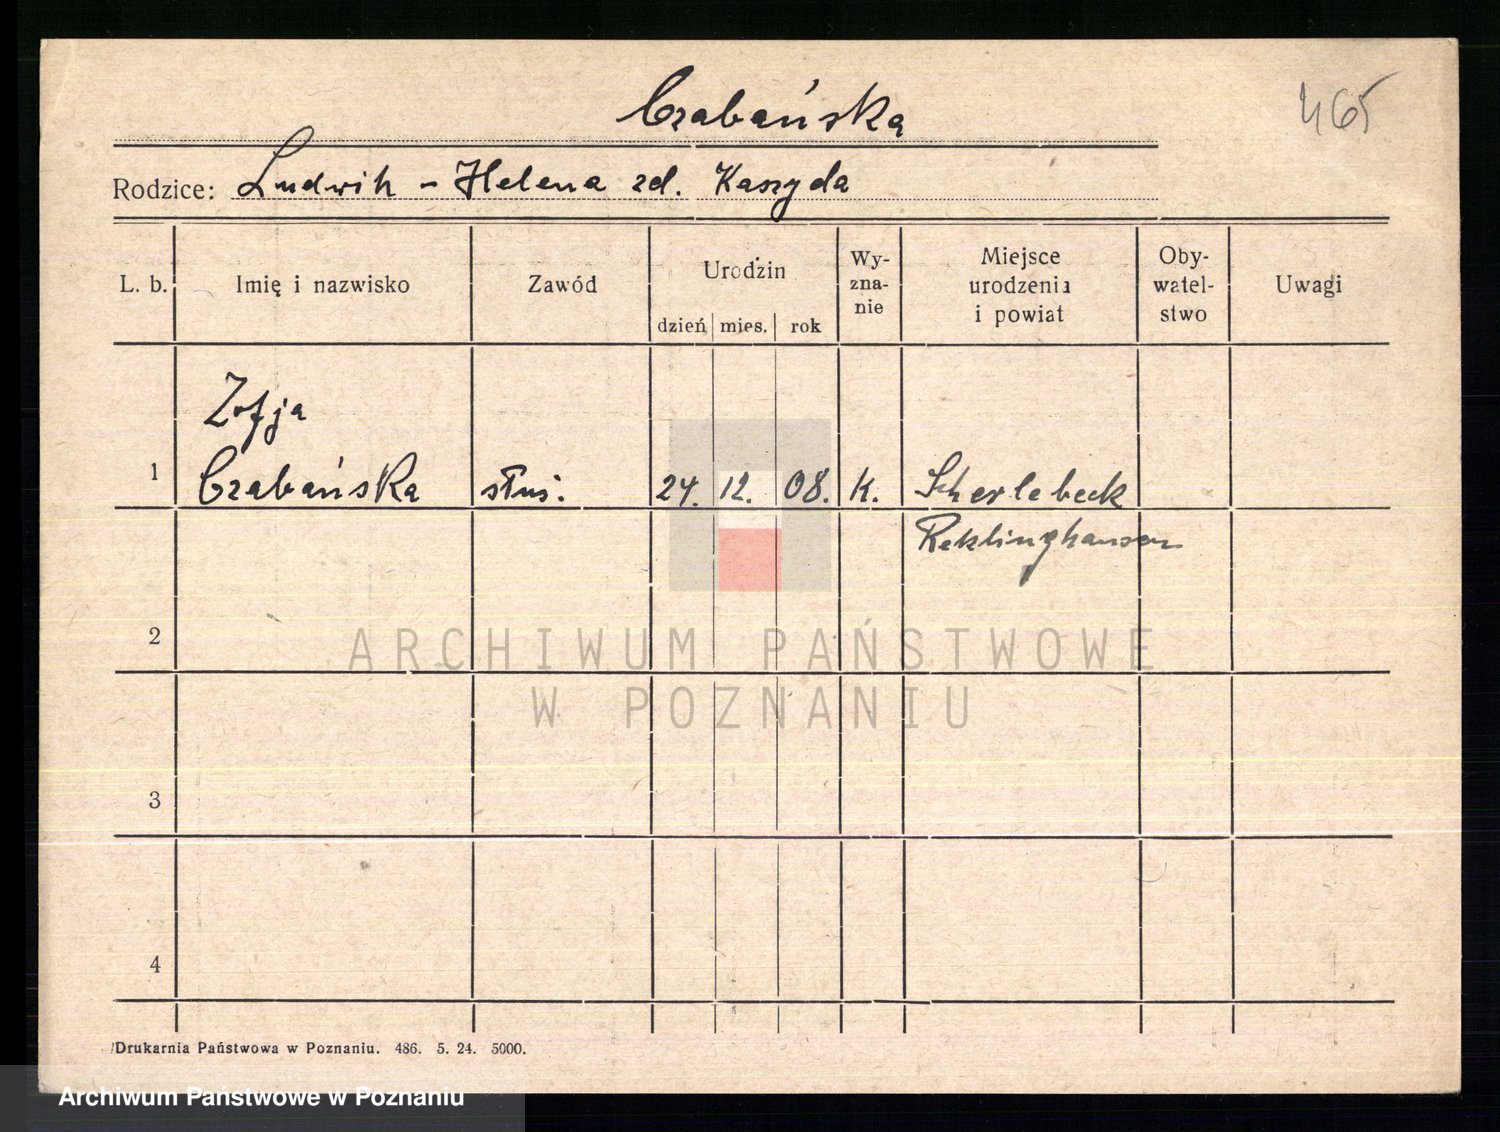 Czabańska
465
Rodzice: Ludwik - Helena zd. Kaszyda
L. b. Imię i nazwisko Zawód Urodzin dzień mies. rok Wy-zna-nie Miejsce urodzenia i powiat Oby-watel-stwo Uwagi
Zofja
1 Czabańska służ. 24. 12. 08. k. Scherlebeck
Reklinghausen
2
ARCHIWUM PAŃSTWOWE
W POZNANIU
3
4
Drukarnia Państwowa w Poznaniu. 486. 5. 24. 5000.
Archiwum Państwowe w Poznaniu